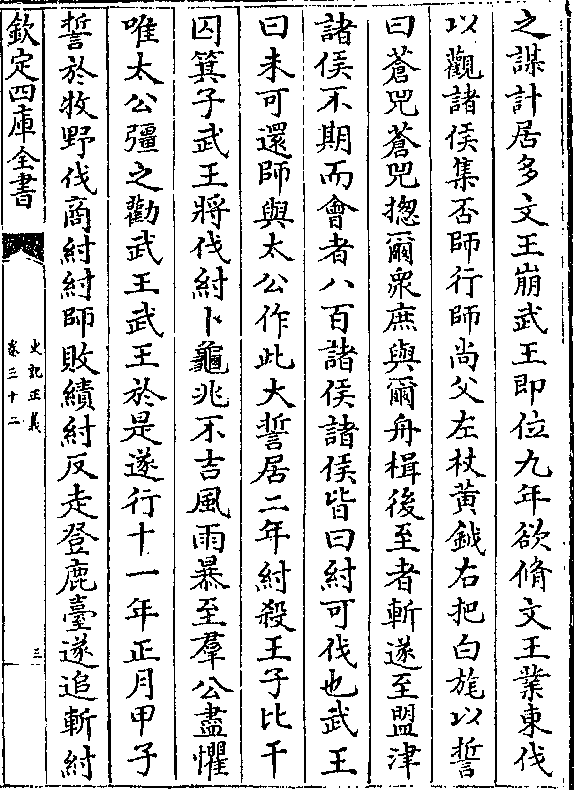 之謀計居多文王崩武王即位九年欲脩文王業東伐
以觀諸侯集否師行師尚父左杖黃鉞右把白旄以誓
曰蒼兕蒼兕揔爾衆庶與爾舟楫後至者斬遂至盟津
諸侯不期而會者八百諸侯諸侯皆曰紂可伐也武王
曰未可還師與太公作此大誓居二年紂殺王子比干
囚箕子武王將伐紂卜龜兆不吉風雨暴至羣公盡懼
唯太公彊之勸武王武王於是遂行十一年正月甲子
誓於牧野伐商紂紂師敗績紂反走登鹿臺遂追斬紂
欽定四庫全書
史記正義
卷三十二
三